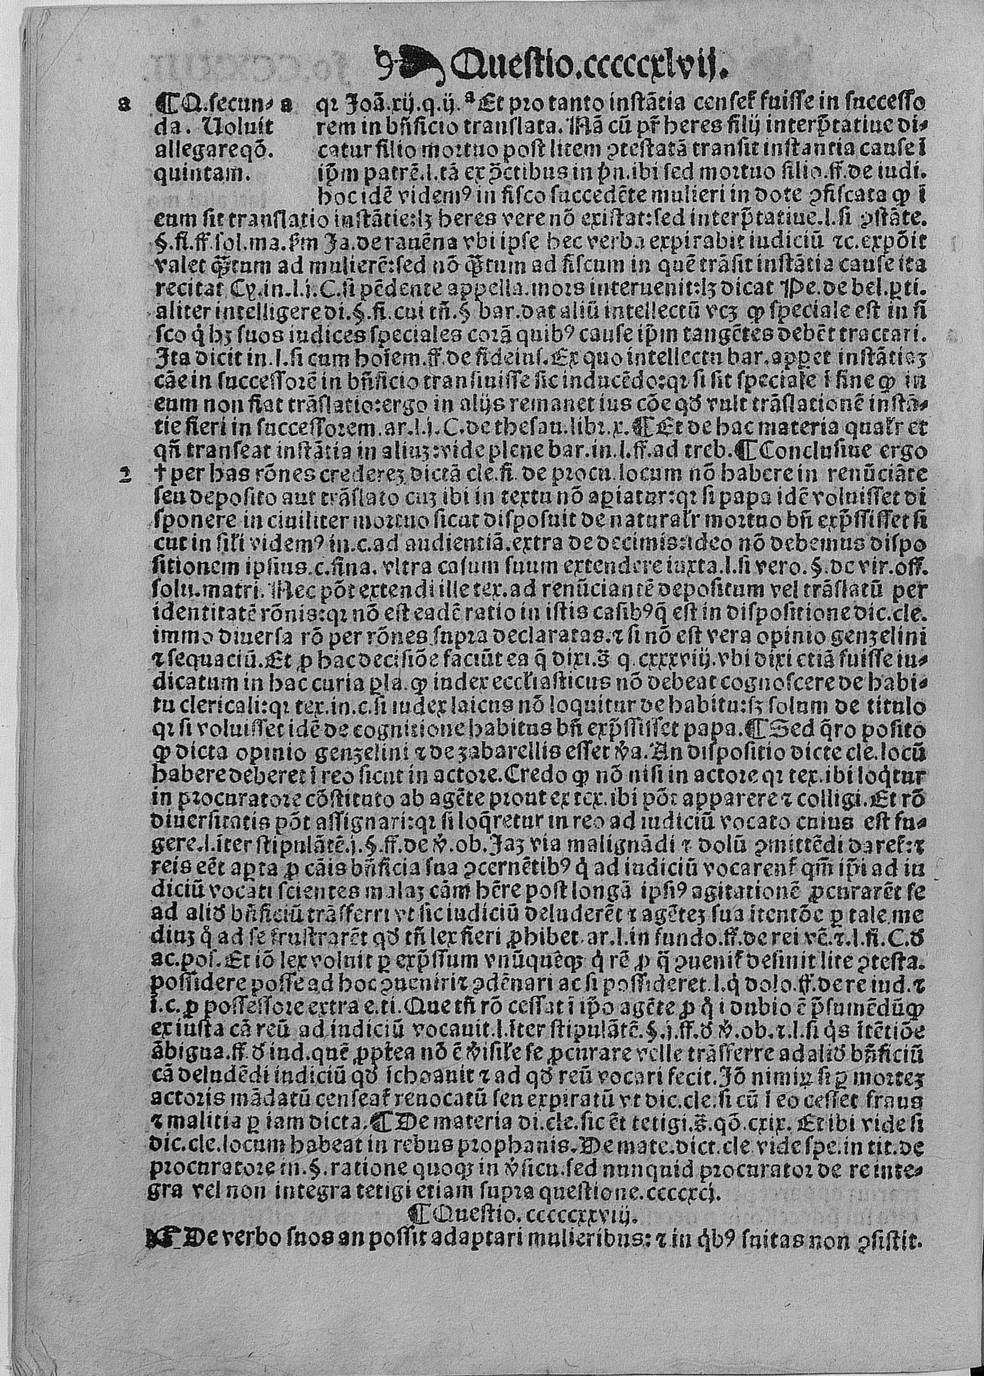 Questio.cccccxlvij.
a ¶Q.secun- a qr Joã.xij.q.ij.ª Et pro tanto instãtia censet̃ fuisse in successo
da. Uoluit rem in bñficio translata. Nã cũ pr̃ heres filij interp̃tatiue di-
allegare qõ. catur filio mortuo post litem ꝯtestatã transit instantia cause ĩ
quintam. ip̃m patrẽ.l.tã ex p̃ctibus in pñ.ibi sed mortuo filio.ff.de iudi.
hoc idẽ videmꝰ in fisco succedẽte mulieri in dote ꝯfiscata ꝙ ĩ
eum sit translatio instãtie:lꝫ heres vere nõ existat:sed interp̃tatiue.l.si ꝯstãte.
§.fi.ff.sol.ma.s̃m Ja.de rauẽna vbi ipse hec verba expirabit iudiciũ ⁊c.expõit
valet q̃tum ad mulierẽ:sed nõ q̃tum ad fiscum in quẽ trãsit instãtia cause ita
recitat Cy.in.l.j.C.si pẽdente appella.mors interuenit:lꝫ dicat Pe.de bel.ꝑti.
aliter intelligere di.§.fi.cui tñ.§ bar.dat aliũ intellectũ vcꝫ ꝙ speciale est in fi
sco q̇ hꝫ suos iudices speciales corã quibꝰ cause ip̃m tangẽtes debẽt tractari.
Ita dicit in.l.si cum hoĩem.ff.de fideius. Ex quo intellectu bar.apꝑet instãtiaꝫ
cãe in successorẽ in bñficio transiuisse sic inducẽdo:qr si sit speciale ĩ fine ꝙ in
eum non fiat trãslatio:ergo in alijs remanet ius cõe qđ vult trãslationẽ instã-
tie fieri in successorem.ar.l.j.C.de thesau.libr.x.¶Et de hac materia qualr̃ et
qñ transeat instãtia in aliuꝫ:vide plene bar.in.l.ff.ad treb.¶Conclusiue ergo
2 † per has rõnes credereꝫ dictã cle.fi.de procu.locum nõ habere in renũciãte
seu deposito aut trãslato cuꝫ ibi in textu nõ aꝑiatur:qr si papa idẽ voluisset di
sponere in ciuiliter mortuo sicut disposuit de naturalr̃ mortuo bñ exp̃ssisset si
cut in sili videmꝰ in.c.ad audientiã.extra de decimis:ideo nõ debemus dispo
sitionem ipsius.c.fina.vltra casum suum extendere iuxta.l.si vero.§.de vir.off.
solu.matri. Nec põt extendi ille tex.ad renũciantẽ depositum vel trãslatũ per
identitatẽ rõnis:qr nõ est eadẽ ratio in istis casibꝰ q̃ est in dispositione dic.cle.
immo diuersa rõ per rõnes supra declaratas.⁊ si nõ est vera opinio genzelini
⁊ sequaciũ.Et ꝓ hac decisiõe faciũt ea q̃ dixi.s̃ q.cxxxviij.vbi dixi etiã fuisse iu-
dicatum in hac curia ꝑla.ꝙ iudex eccliasticus nõ debeat cognoscere de habi-
tu clericali:qr tex.in.c.si iudex laicus nõ loquitur de habitu:sꝫ solum de titulo
qr si voluisset idẽ de cognitione habitus bñ exp̃ssisset papa.¶Sed q̃ro posito
ꝙ dicta opinio genzelini ⁊ de zabarellis esset ṽa. An dispositio dicte cle.locũ
habere deberet ĩ reo sicut in actore.Credo ꝙ nõ nisi in actore qr tex.ibi loq̃tur
in procuratore cõstituto ab agẽte prout ex tex.ibi põt apparere ⁊ colligi.Et rõ
diuersitatis põt assignari:qr si loq̃retur in reo ad iudiciũ vocato cuius est fu-
gere.l.iter stipulãtẽ.j.§.ff.de ṽ.ob. Jaꝫ via malignãdi ⁊ dolũ ꝯmittẽdi daret̃:⁊
reis eẽt apta ꝓ cãis bñficia sua ꝯcernẽtibꝰ q̇ ad iudiciũ vocarent̃ qm̃ ip̃i ad iu
diciũ vocati scientes malaꝫ cãm hẽre post longã ipsiꝰ agitationẽ ꝓcurarẽt se
ad aliđ bñficiũ trãsferri vt sic iudiciũ deluderẽt ⁊ agẽteꝫ sua ĩtentõe ꝑ tale me
diuꝫ q̇ ad se frustrarẽt qđ tñ lex fieri ꝓhibet.ar.l.in fundo.ff.de rei vẽ.⁊.l.fi.C.đ
ac.pos.Et iõ lex voluit ꝑ exp̃ssum vnũquẽqꝫ q̇ rẽ ꝓ q̃ ꝯuenit̃ desinit lite ꝯtesta.
possidere posse ad hoc ꝯueniri ⁊ ꝯdẽnari ac si possideret.l.q̇ dolo.ff.de re iud.⁊
i.c.ꝓ possessore extra e.ti.Que tñ rõ cessat ĩ ip̃o agẽte ꝓ q̇ i dubio ẽ p̃sumẽdũ ꝙ
ex iusta cã reũ ad iudiciũ vocauit.l.ĩter stipulãtẽ.§.j.ff.đ ṽ.ob.⁊.l.si q̇s ĩtẽtiõe
ãbigua.ff.đ iud.quẽ ꝓptea nõ ẽ ṽisile se ꝓcurare velle trãsferre ad aliđ bñficiũ
cã deludẽdi iudiciũ qđ ĩchoauit ⁊ ad qđ reũ vocari fecit.Jõ nimiꝝ si ꝑ morteꝫ
actoris mãdatũ censeat̃ reuocatũ seu expiratũ vt dic.cle.si cũ ĩ eo cesset fraus
⁊ malitia ꝑ iam dicta.¶De materia di.cle.sic ẽt tetigi.s̃.qõ.cxix. Et ibi vide si
dic.cle.locum habeat in rebus prophanis. De mate.dict.cle.vide spe.in tit.de
procuratore in.§.ratione quoqꝫ in ṽsicu.sed nunquid procurator de re inte-
gra vel non integra tetigi etiam supra questione.ccccxcj.
¶Questio.cccccxxviij.
De verbo suos an possit adaptari mulieribus:⁊ in q̇bꝰ suitas non ꝯsistit.